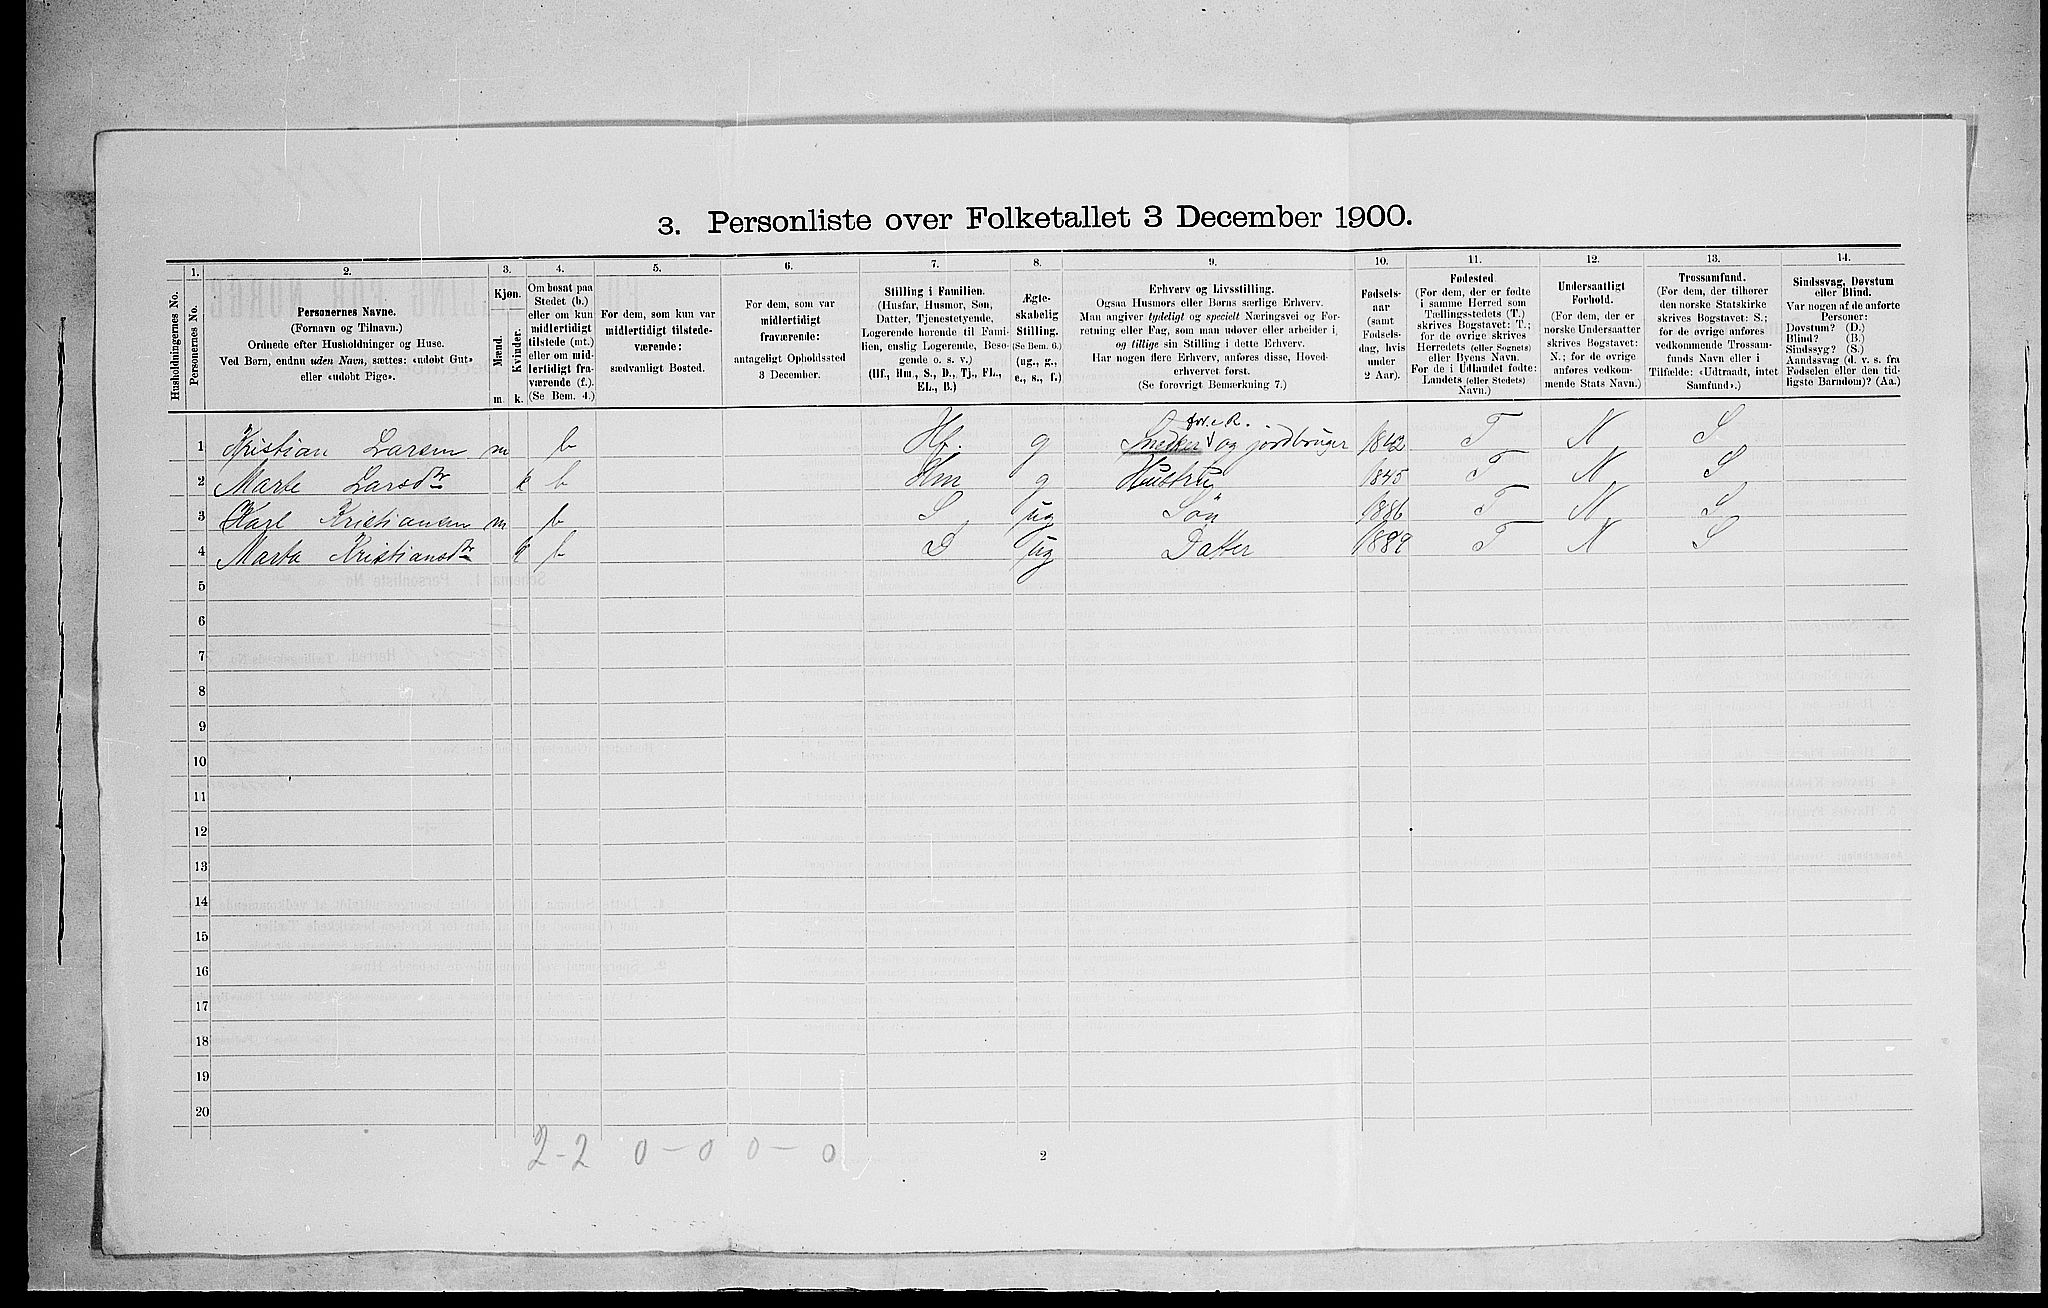 3. Personliste over Folketallet 3 December 1900.
Husholdningernes No.
1.
Personernes No.
2.
Personernes Navne.
(Fornavn og Tilnavn.)
Ordnede efter Husholdninger og Huse.
Ved Børn, endnu uden Navn, sættes: «udøbt Gut»
eller «udøbt Pige».
3.
Kjøn.
Mænd.
Kvinder.
m k.
4.
Om bosat paa
Stedet (b.)
eller om kun
midlertidigt
tilstede (mt.)
eller om mid-
lertidigt fra-
værende (f.).
(Se Bem. 4.)
5.
For dem, som kun var
midlertidigt tilstede-
værende:
sædvanligt Bosted.
6.
For dem, som var
midlertidigt
fraværende:
antageligt Opholdssted
3 December.
7.
Stilling i Familien.
(Husfar, Husmor, Søn,
Datter, Tjenestetyende,
Logerende hørende til Fami-
lien, enslig Logerende, Besø-
gende o. s. v.)
(Hf., Hm., S., D., Tj., FL.,
EL., B.)
8.
Ægte-
skabelig
Stilling.
(Se Bem. 6.)
(ug., g.,
e., s., f.)
9.
Erhverv og Livsstilling.
Ogsaa Husmors eller Børns særlige Erhverv.
Man angiver tydeligt og specielt Næringsvei og For-
retning eller Fag, som man udøver eller arbeider i,
og tillige sin Stilling i dette Erhverv.
Har nogen flere Erhverv, anføres disse, Hoved-
erhvervet først.
(Se forøvrigt Bemærkning 7.)
10.
Fødsels-
aar
(samt
Fødsels-
dag, hvis
under
2 Aar).
11.
Fødested
(For dem, der er fødte
i samme Herred som
Tællingsstedets (T.)
skrives Bogstavet: T.;
for de øvrige skrives
Herredets (eller Sognets)
eller Byens Navn.
For de i Udlandet fødte:
Landets (eller Stedets)
Navn.)
12.
Undersaatligt
Forhold.
(For dem, der er
norske Undersaatter
skrives Bogstavet:
N.; for de øvrige
anføres vedkom-
mende Stats Navn.)
13.
Trossamfund.
(For dem, der tilhører
den norske Statskirke
skrives Bogstavet: S.;
for de øvrige anføres
vedkommende Trossam-
funds Navn eller i
Tilfælde: «Udtraadt, intet
Samfund».)
14.
Sindssvag, Døvstum
eller Blind.
Var nogen af de anførte
Personer:
Døvstum? (D.)
Blind? (B.)
Sindssyg? (S.)
Aandssvag (d. v. s. fra
Fødselen eller den tid-
ligste Barndom)? (Aa.)
1 Kristian Larsen m b Hf. g Snedker og jordbruger 1842 T N S
2 Marte Larsdtr k b Hm g Hustru 1845 T N S
3 Karl Kristiansen m b S ug Søn 1886 T N S
4 Marta Kristiansdtr k b D ug Datter 1889 T N S
5
6
7
8
9
10
11
12
13
14
15
16
17
18
19
20
2-2 0-0 0-0
2